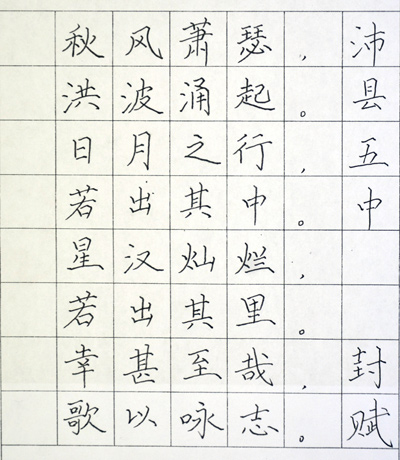 秋风萧瑟，
洪波涌起。
日月之行，
若出其中。
星汉灿烂，
若出其里。
幸甚至哉，
歌以咏志。
沛县五中
封赋